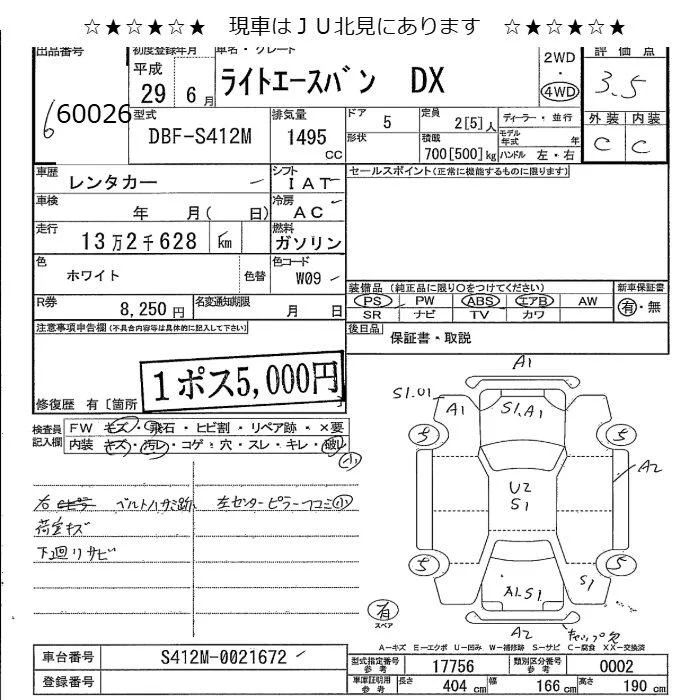 ☆★☆★☆★ 現車はＪＵ北見にあります ☆★☆★☆★
出品番号 初度登録年月 車名・グレード 2WD・4WD 評価点
60026 平成 29 6月 ライトエースバン DX 3.5
型式 DBF-S412M 排気量 1495 CC
ドア 5 定員 2[5]人 ディーラー・並行
形状 積載 700[500]kg モデル年式 年 ハンドル 左・右
外装 内装
C C
車歴 レンタカー シフト IAT セールスポイント(正常に機能するものに限ります)
車検 年 月( 日) 冷房 AC
走行 13万2千628 km 燃料 ガソリン
色 ホワイト 色替 色コード W09
R券 8,250円 名変通知期限 月 日
装備品 (純正品に限り○をつけてください) 新車保証書
PS PW ABS エアB AW 有・無
SR ナビ TV カワ
後日品 保証書・取説
注意事項申告欄(不具合内容等は具体的に記入して下さい)
1ポス5,000円
修復歴 有〔箇所 〕
検査員記入欄 FW キズ・飛石・ヒビ割・リペア跡・×要
内装 キズ・汚レ・コゲ・穴・スレ・キレ・破レ
小
右 ピラ ベルトハサミ跡 左センターピラー凹コミ小
荷室キズ
下廻リサビ
A1
S1.01 A1 S1.A1
5 5
A2
U2
S1
5 5
A1.S1 S1
有 スペア
A2 キャップ欠
A－キズ E－エクボ U－凹み W－補修跡 S－サビ C－腐食 XX－交換済
車台番号 S412M-0021672
登録番号
型式指定番号参考 17756 類別区分番号参考 0002
車庫証明用参考 長さ 404 cm 幅 166 cm 高さ 190 cm